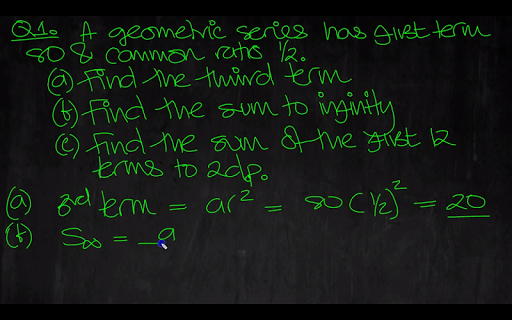 Q1. A geometric series has first term
80 & common ratio 1/2.
(a) Find the third term
(b) Find the sum to infinity
(c) Find the sum of the first 12
terms to 2dp.
(a) 3rd term = ar² = 80(1/2)² = 20
(b) S∞ = a